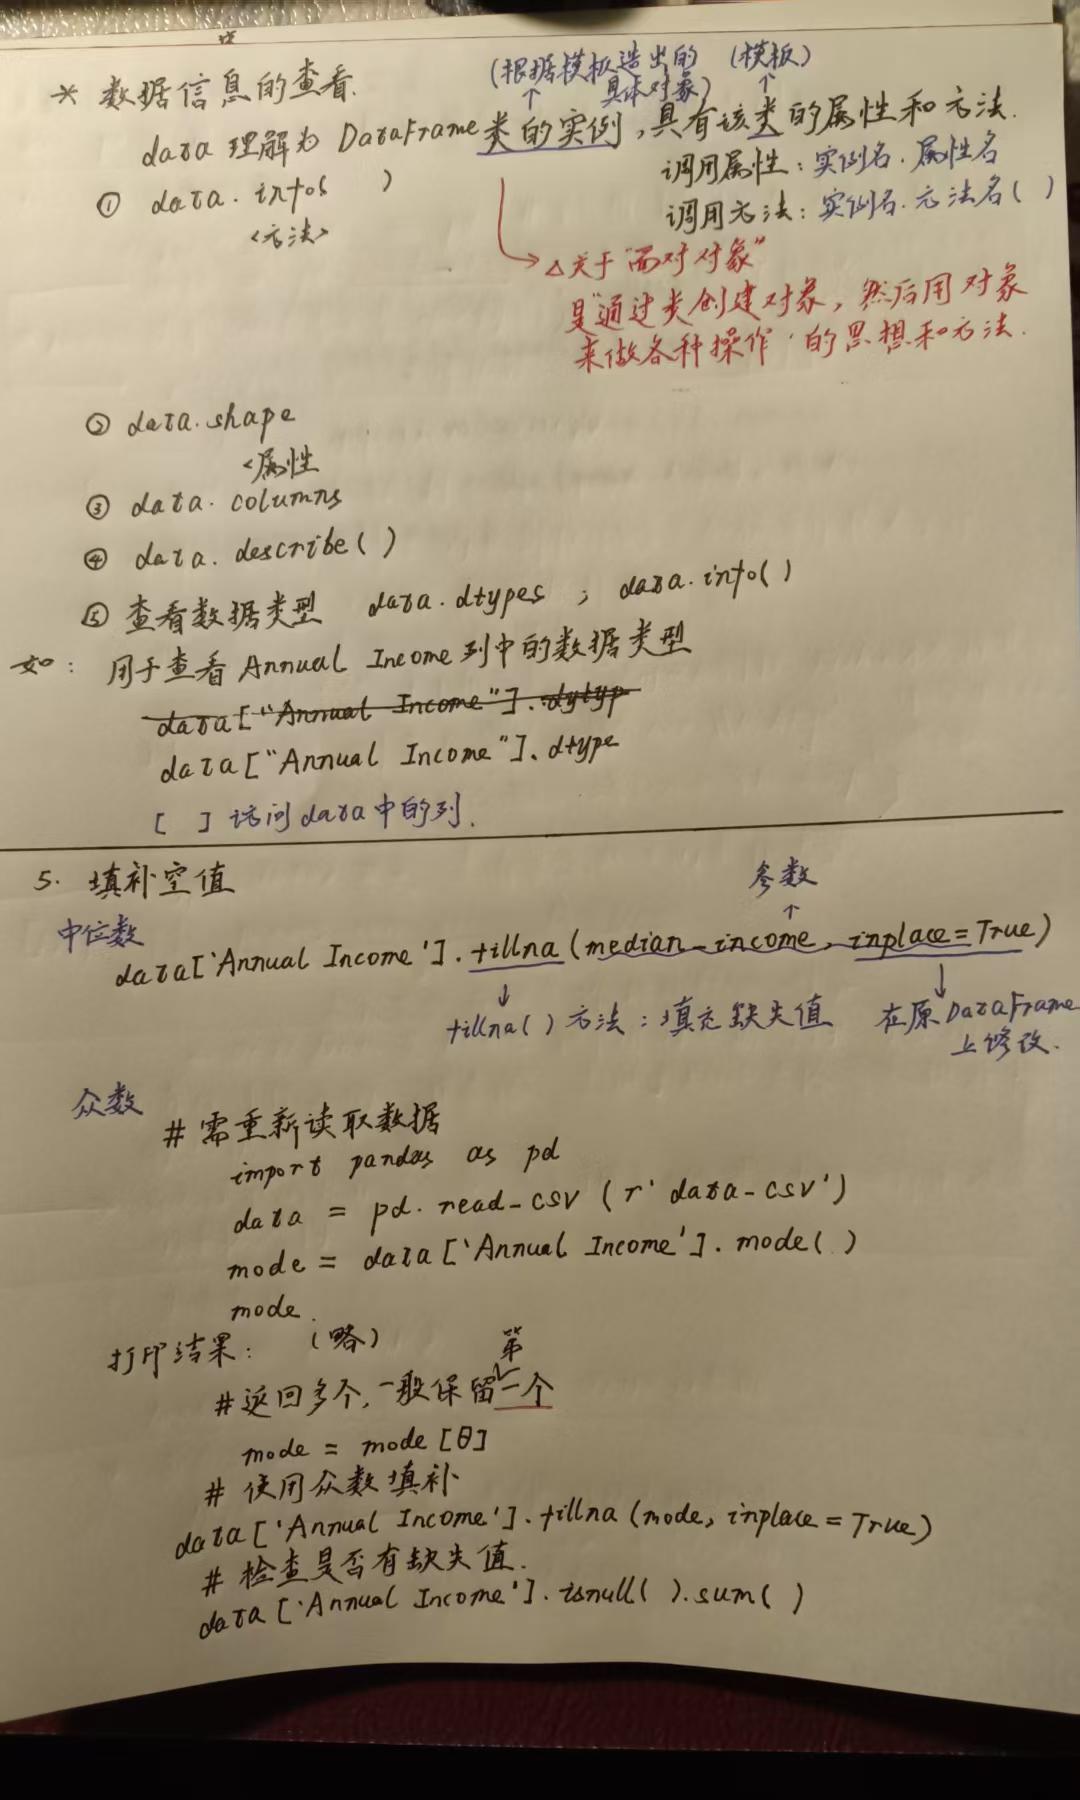 * 数据信息的查看.
(根据模板造出的具体对象) (模板)
data 理解为 DataFrame类的实例,具有该类的属性和方法.
调用属性:实例名.属性名
① data.info( )
<方法>
调用方法:实例名.方法名( )
△关于"面对对象"
是"通过类创建对象,然后用对象
来做各种操作"的思想和方法.
② data.shape
<属性
③ data.columns
④ data.describe( )
⑤ 查看数据类型 data.dtypes ; data.info( )
如: 用于查看Annual Income列中的数据类型
data["Annual Income"].dytyp
data["Annual Income"].dtype
[ ] 访问data中的列.
5. 填补空值
参数
中位数
data['Annual Income'].fillna(median_income, inplace=True)
fillna( ) 方法:填充缺失值 在原DataFrame
上修改.
众数
# 需重新读取数据
import pandas as pd
data = pd.read_csv (r'data-csv')
mode = data['Annual Income'].mode( )
mode.
打印结果: (略)
#返回多个,一般保留第一个
mode = mode [0]
# 使用众数填补
data['Annual Income'].fillna(mode, inplace=True)
# 检查是否有缺失值.
data['Annual Income'].isnull( ).sum( )